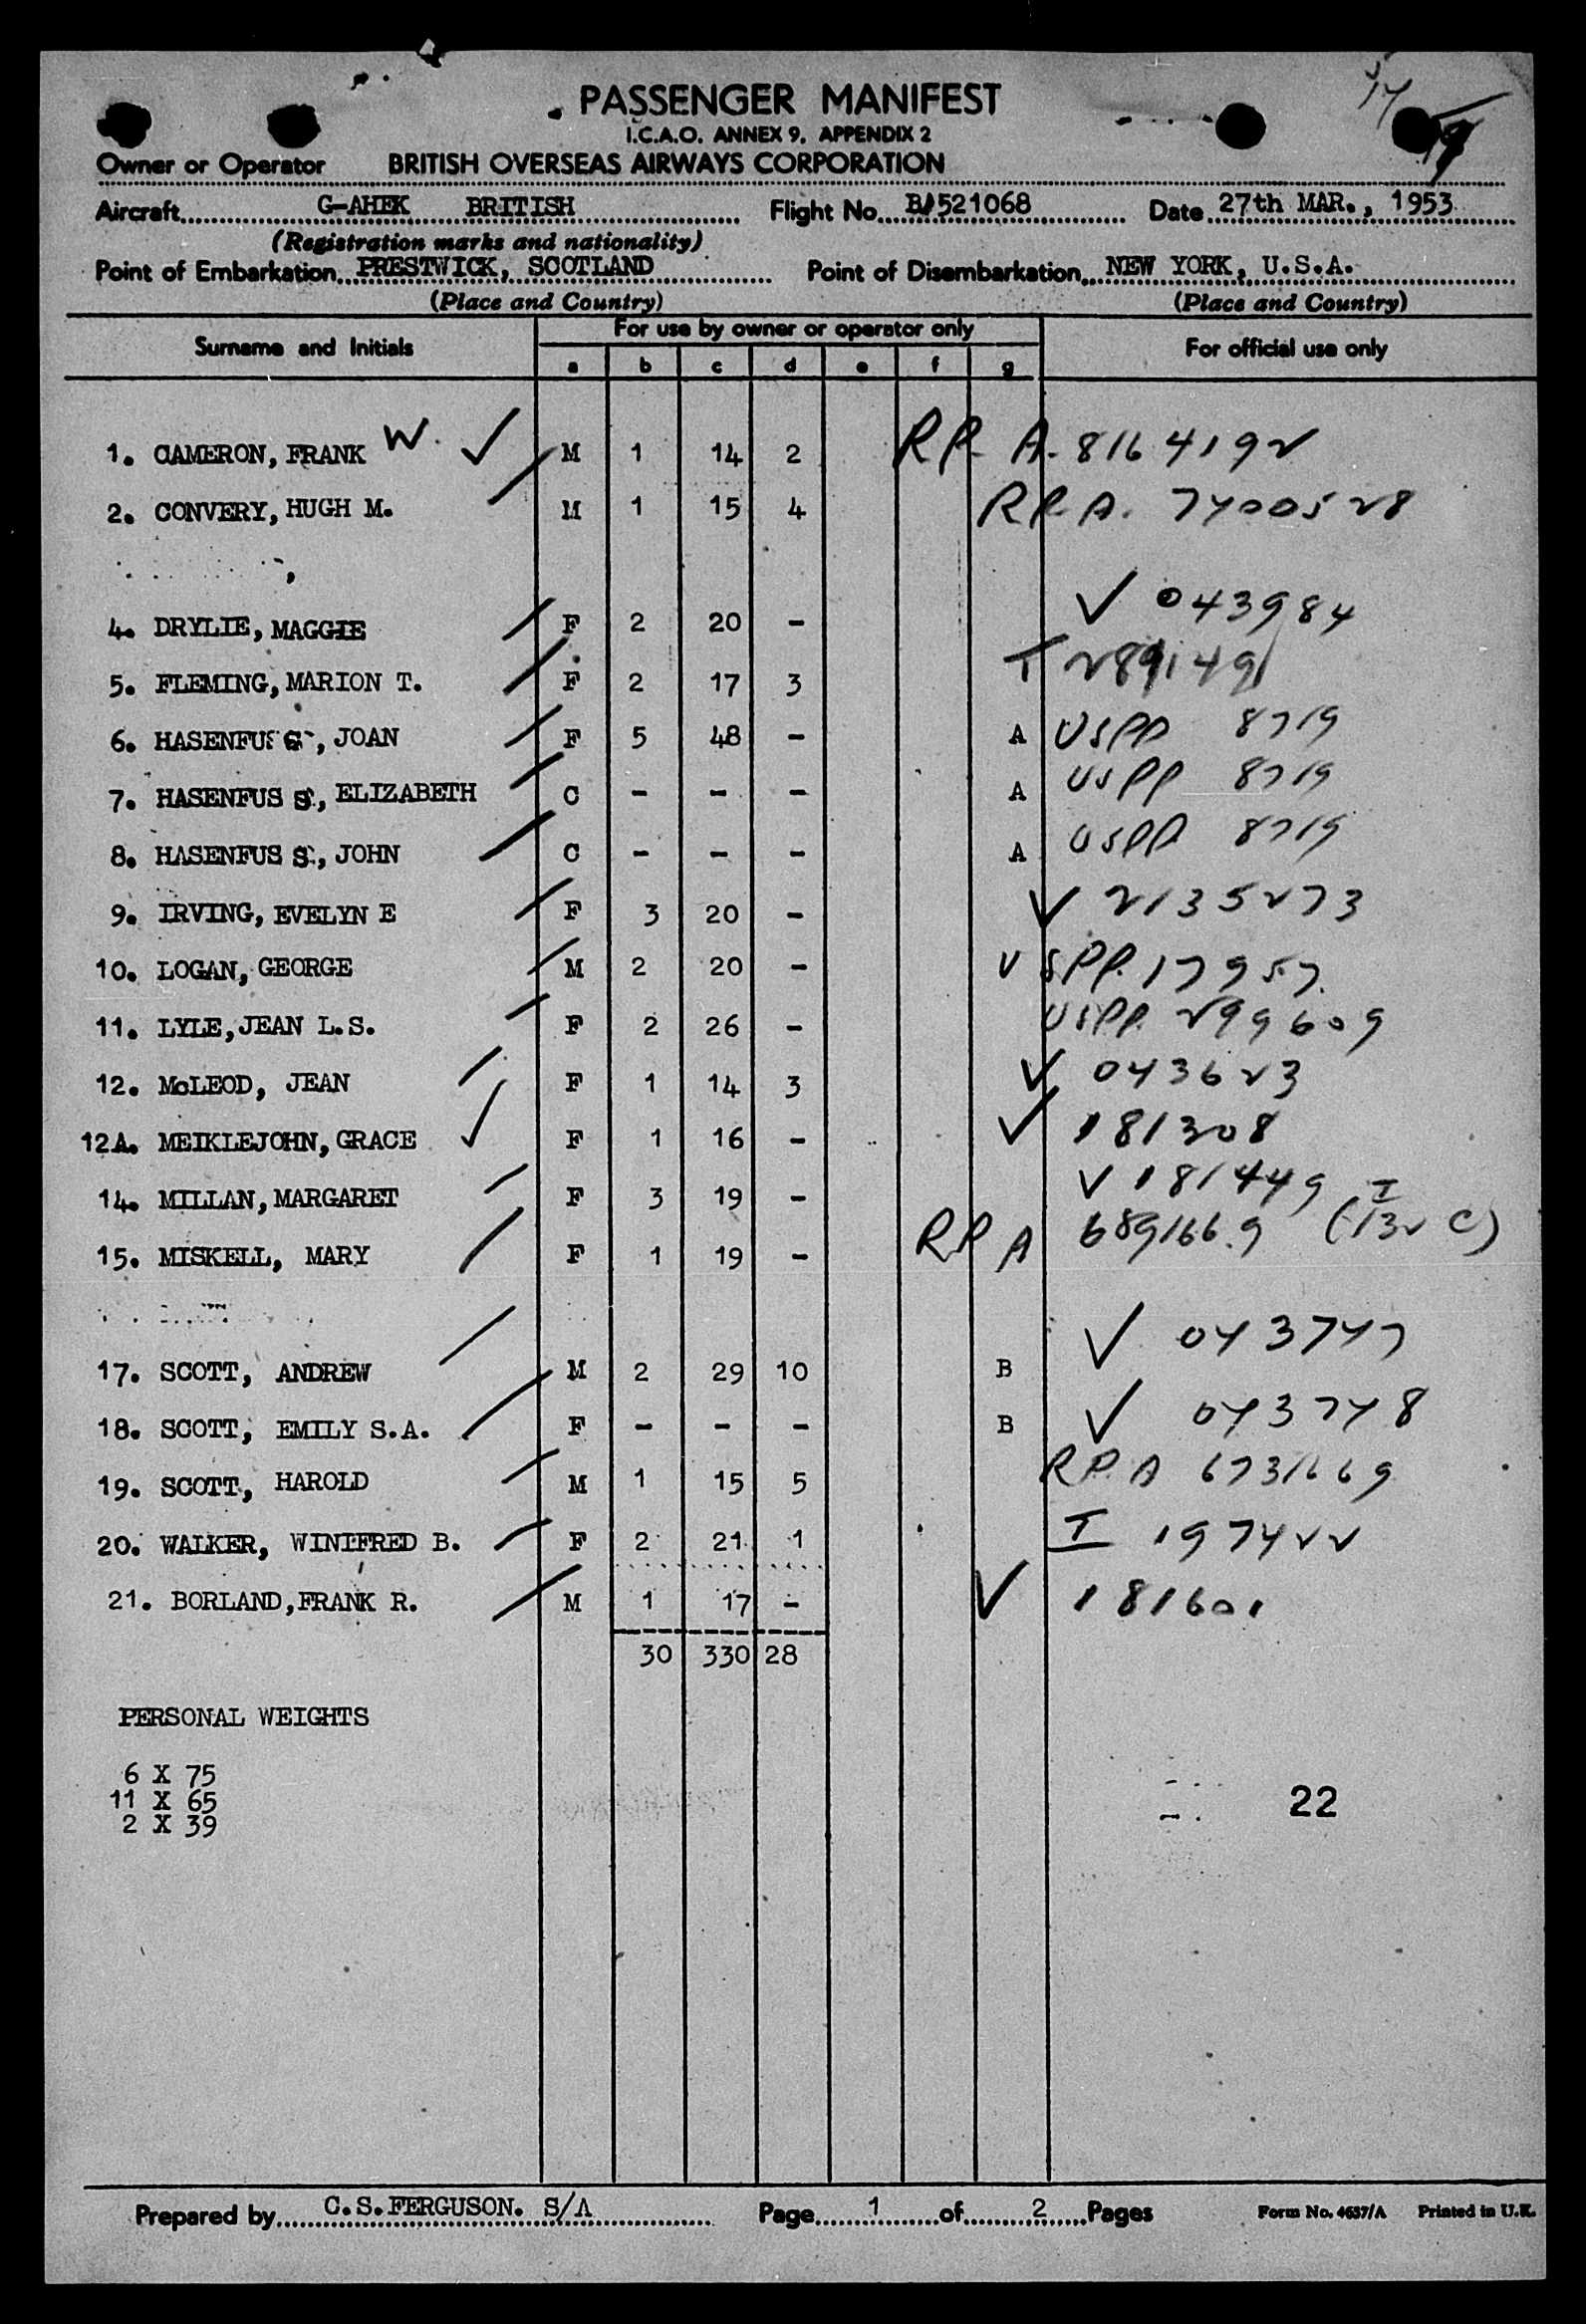 PASSENGER MANIFEST
I.C.A.O. ANNEX 9, APPENDIX 2
Owner or Operator BRITISH OVERSEAS AIRWAYS CORPORATION
Aircraft G-AHEK BRITISH Flight No. BA521068 Date 27th MAR., 1953
(Registration marks and nationality)
Point of Embarkation PRESTWICK, SCOTLAND Point of Disembarkation NEW YORK, U.S.A.
(Place and Country) (Place and Country)
For use by owner or operator only
Surname and Initials For official use only
a b c d e f g
1. CAMERON, FRANK W. ✓ M 1 14 2 RP A. 8164192
2. CONVERY, HUGH M. M 1 15 4 RP A. 7400528
4. DRYLIE, MAGGIE F 2 20 - V 043984
5. FLEMING, MARION T. F 2 17 3 I 289149
6. HASENFUSS, JOAN F 5 48 - A USPP 8719
7. HASENFUSS, ELIZABETH C - - - A USPP 8719
8. HASENFUSS, JOHN C - - - A USPP 8719
9. IRVING, EVELYN E F 3 20 - V 2135273
10. LOGAN, GEORGE M 2 20 - USPP. 17957.
11. LYLE, JEAN L.S. F 2 26 - USPP. 299609
12. McLEOD, JEAN F 1 14 3 V 043623
12A. MEIKLEJOHN, GRACE ✓ F 1 16 - V 181308
14. MILLAN, MARGARET F 3 19 - V 181449
15. MISKELL, MARY F 1 19 - RP A 6891669 (I 132 C)
17. SCOTT, ANDREW M 2 29 10 B V 043747
18. SCOTT, EMILY S.A. F - - - B V 043748
19. SCOTT, HAROLD M 1 15 5 RP A 6731669
20. WALKER, WINIFRED B. F 2 21 1 I 197422
21. BORLAND, FRANK R. M 1 17 - V 181601
30 330 28
PERSONAL WEIGHTS
6 X 75
11 X 65
2 X 39
22
Prepared by C.S.FERGUSON. S/A Page 1 of 2 Pages Form No. 4637/A Printed in U.K.